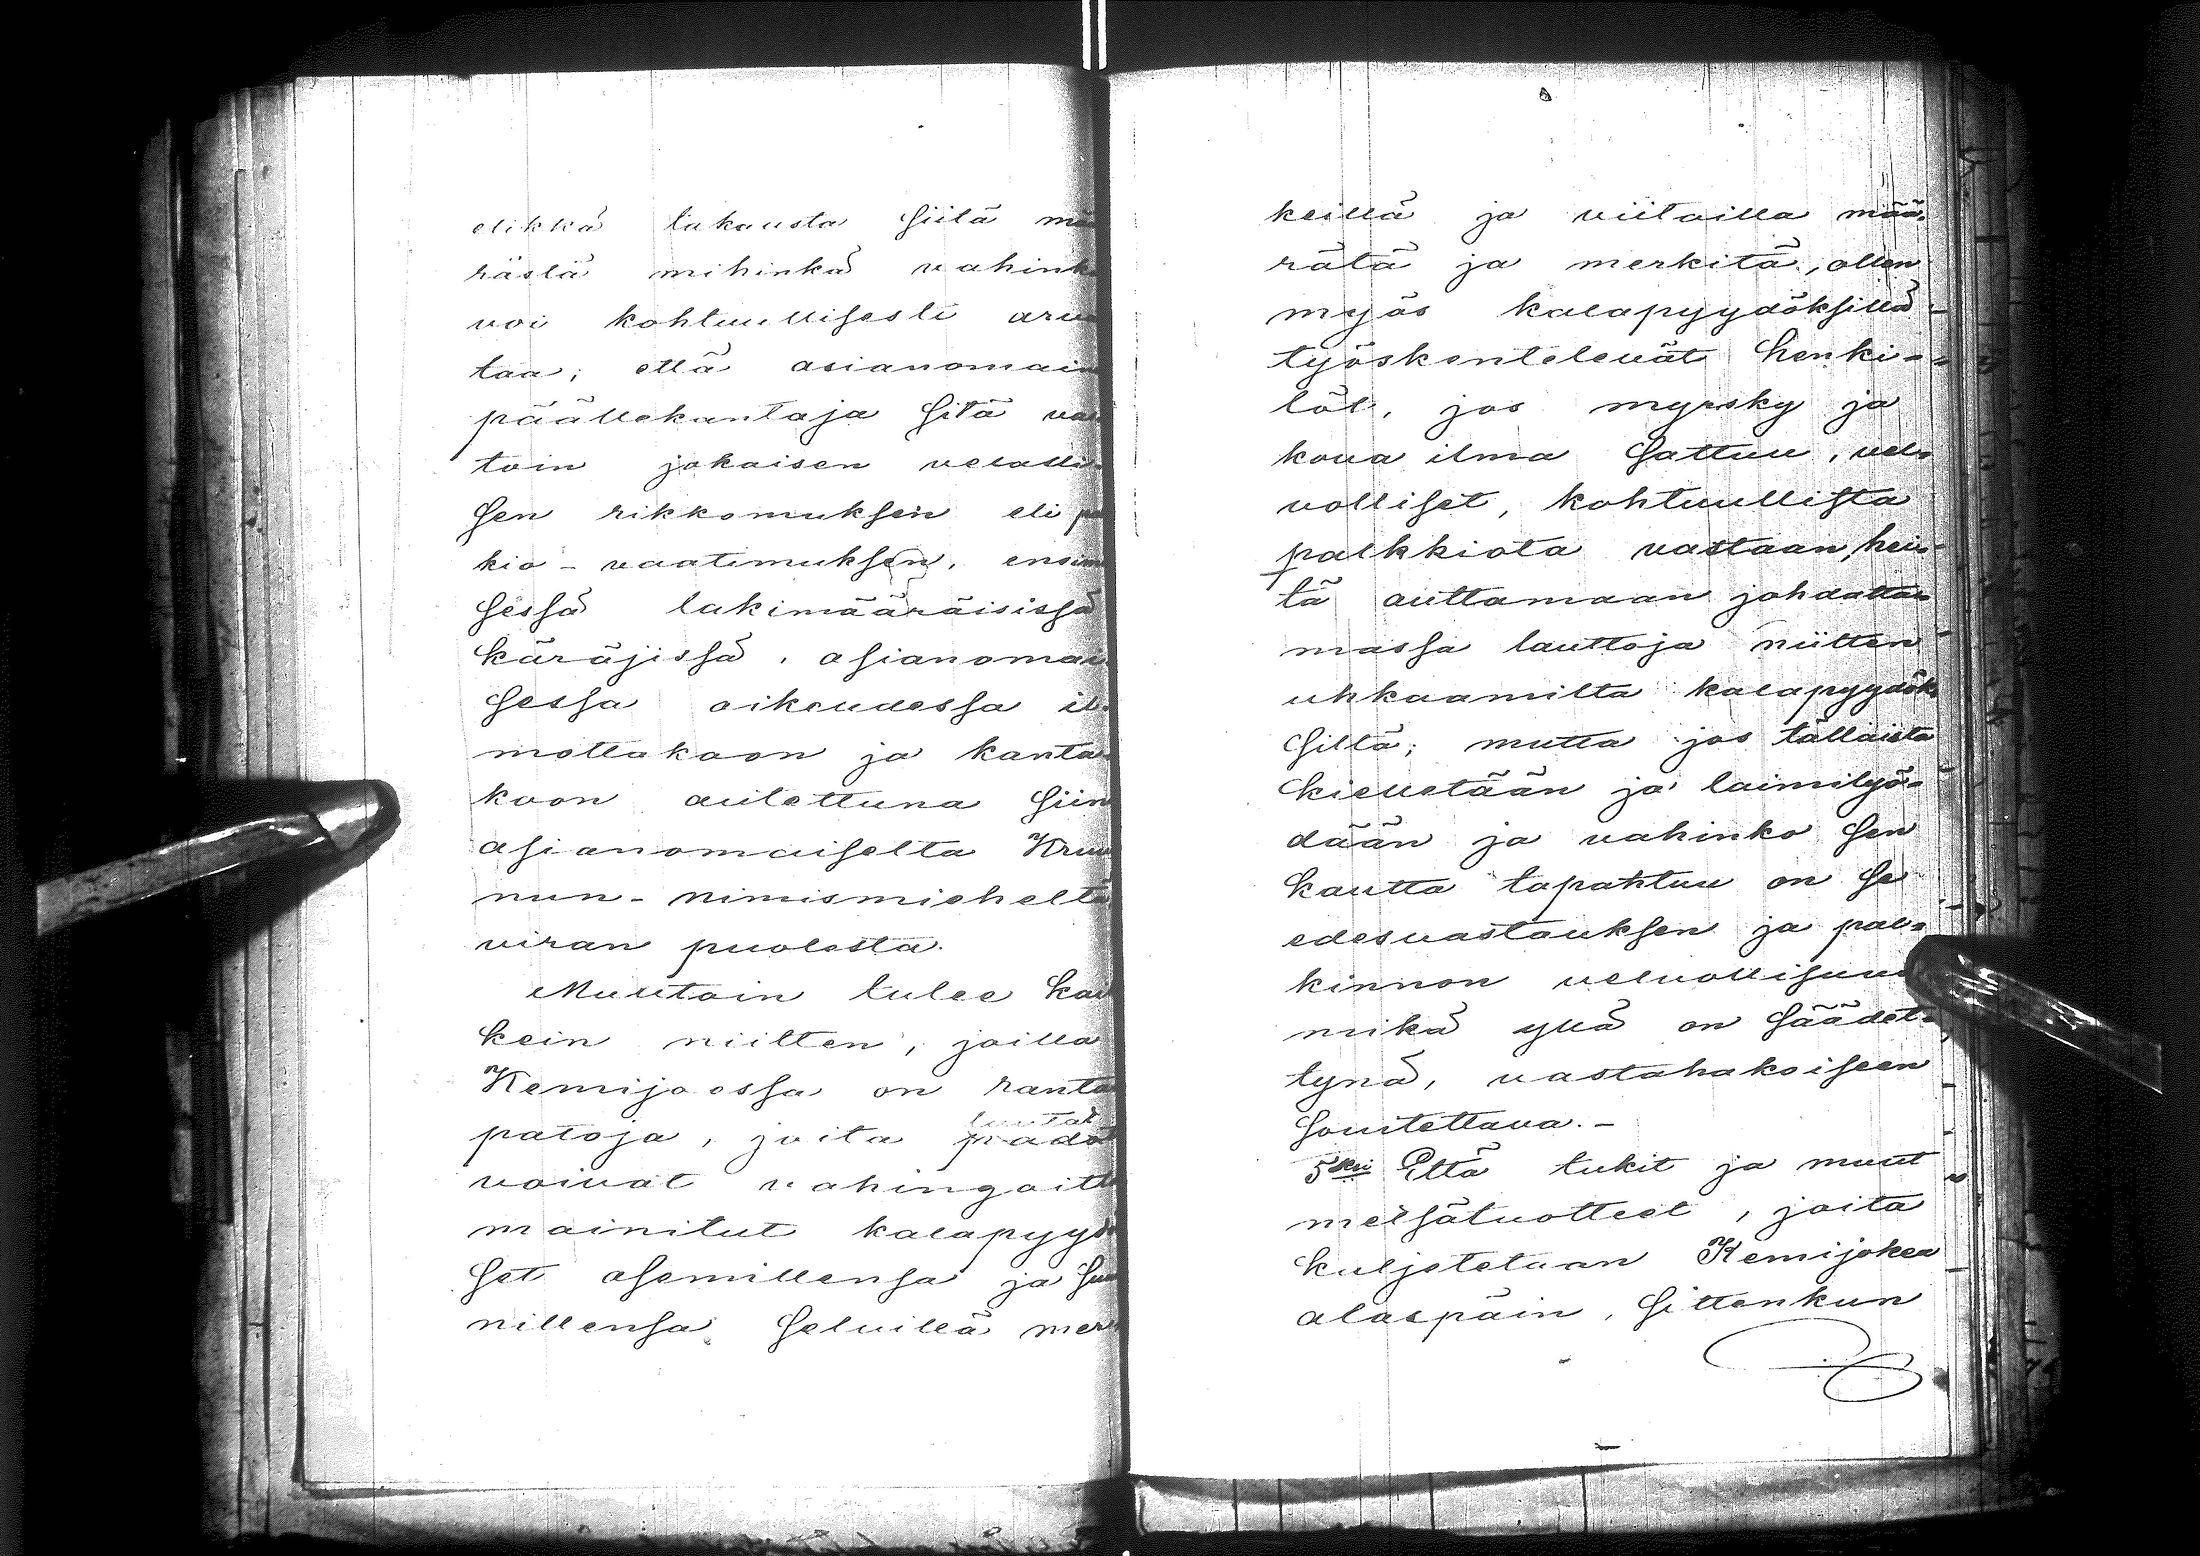 elikkä takausta siitä mä
rästä mihinkä vahink
voi kohtuullisesti arve
taa; että asianomain
päällekantaja sitä va
toin jokaisen velalli-
sen rikkomuksen eli p
kio-vaatimuksen, ensim
sessä lakimääräisissä
käräjissä, asianomai
sessa oikeudessa il-
mottakoon ja kanta-
koon autettuna siin
asianomaiselta Kruu
nun-nimismieheltä
viran puolesta.
Muutoin tulee kai
kein niitten, joilla
Kemijoessa on ranta
patoja, joita lautat
padot
voivat vahingoitt
mainitut kalapyyd
set asemillensa ja suu
nillensa selvillä mer
keillä ja viitoilla mää-
rätä ja merkitä, ollen
myös kalapyydöksillä-
työskentelevät henki-
löt, jos myrsky ja
kova ilma sattuu, vel-
volliset, kohtuullista
palkkiota vastaan, hei-
tä auttamaan johdatta-
massa lauttoja niitten
uhkaamilta kalapyydök-
siltä; mutta jos tällaista
kielletään ja laimilyö-
dään ja vahinko sen
kautta tapahtuu on se
edesvastauksen ja pal-
kinnon velvollisuus
mikä yllä on säädet-
tynä, vastahakoiseen
sovitettava.-
5ksi Että tukit ja muut
metsätuotteet, joita
kuljetetaan Kemijokea
alaspäin, sittenkun